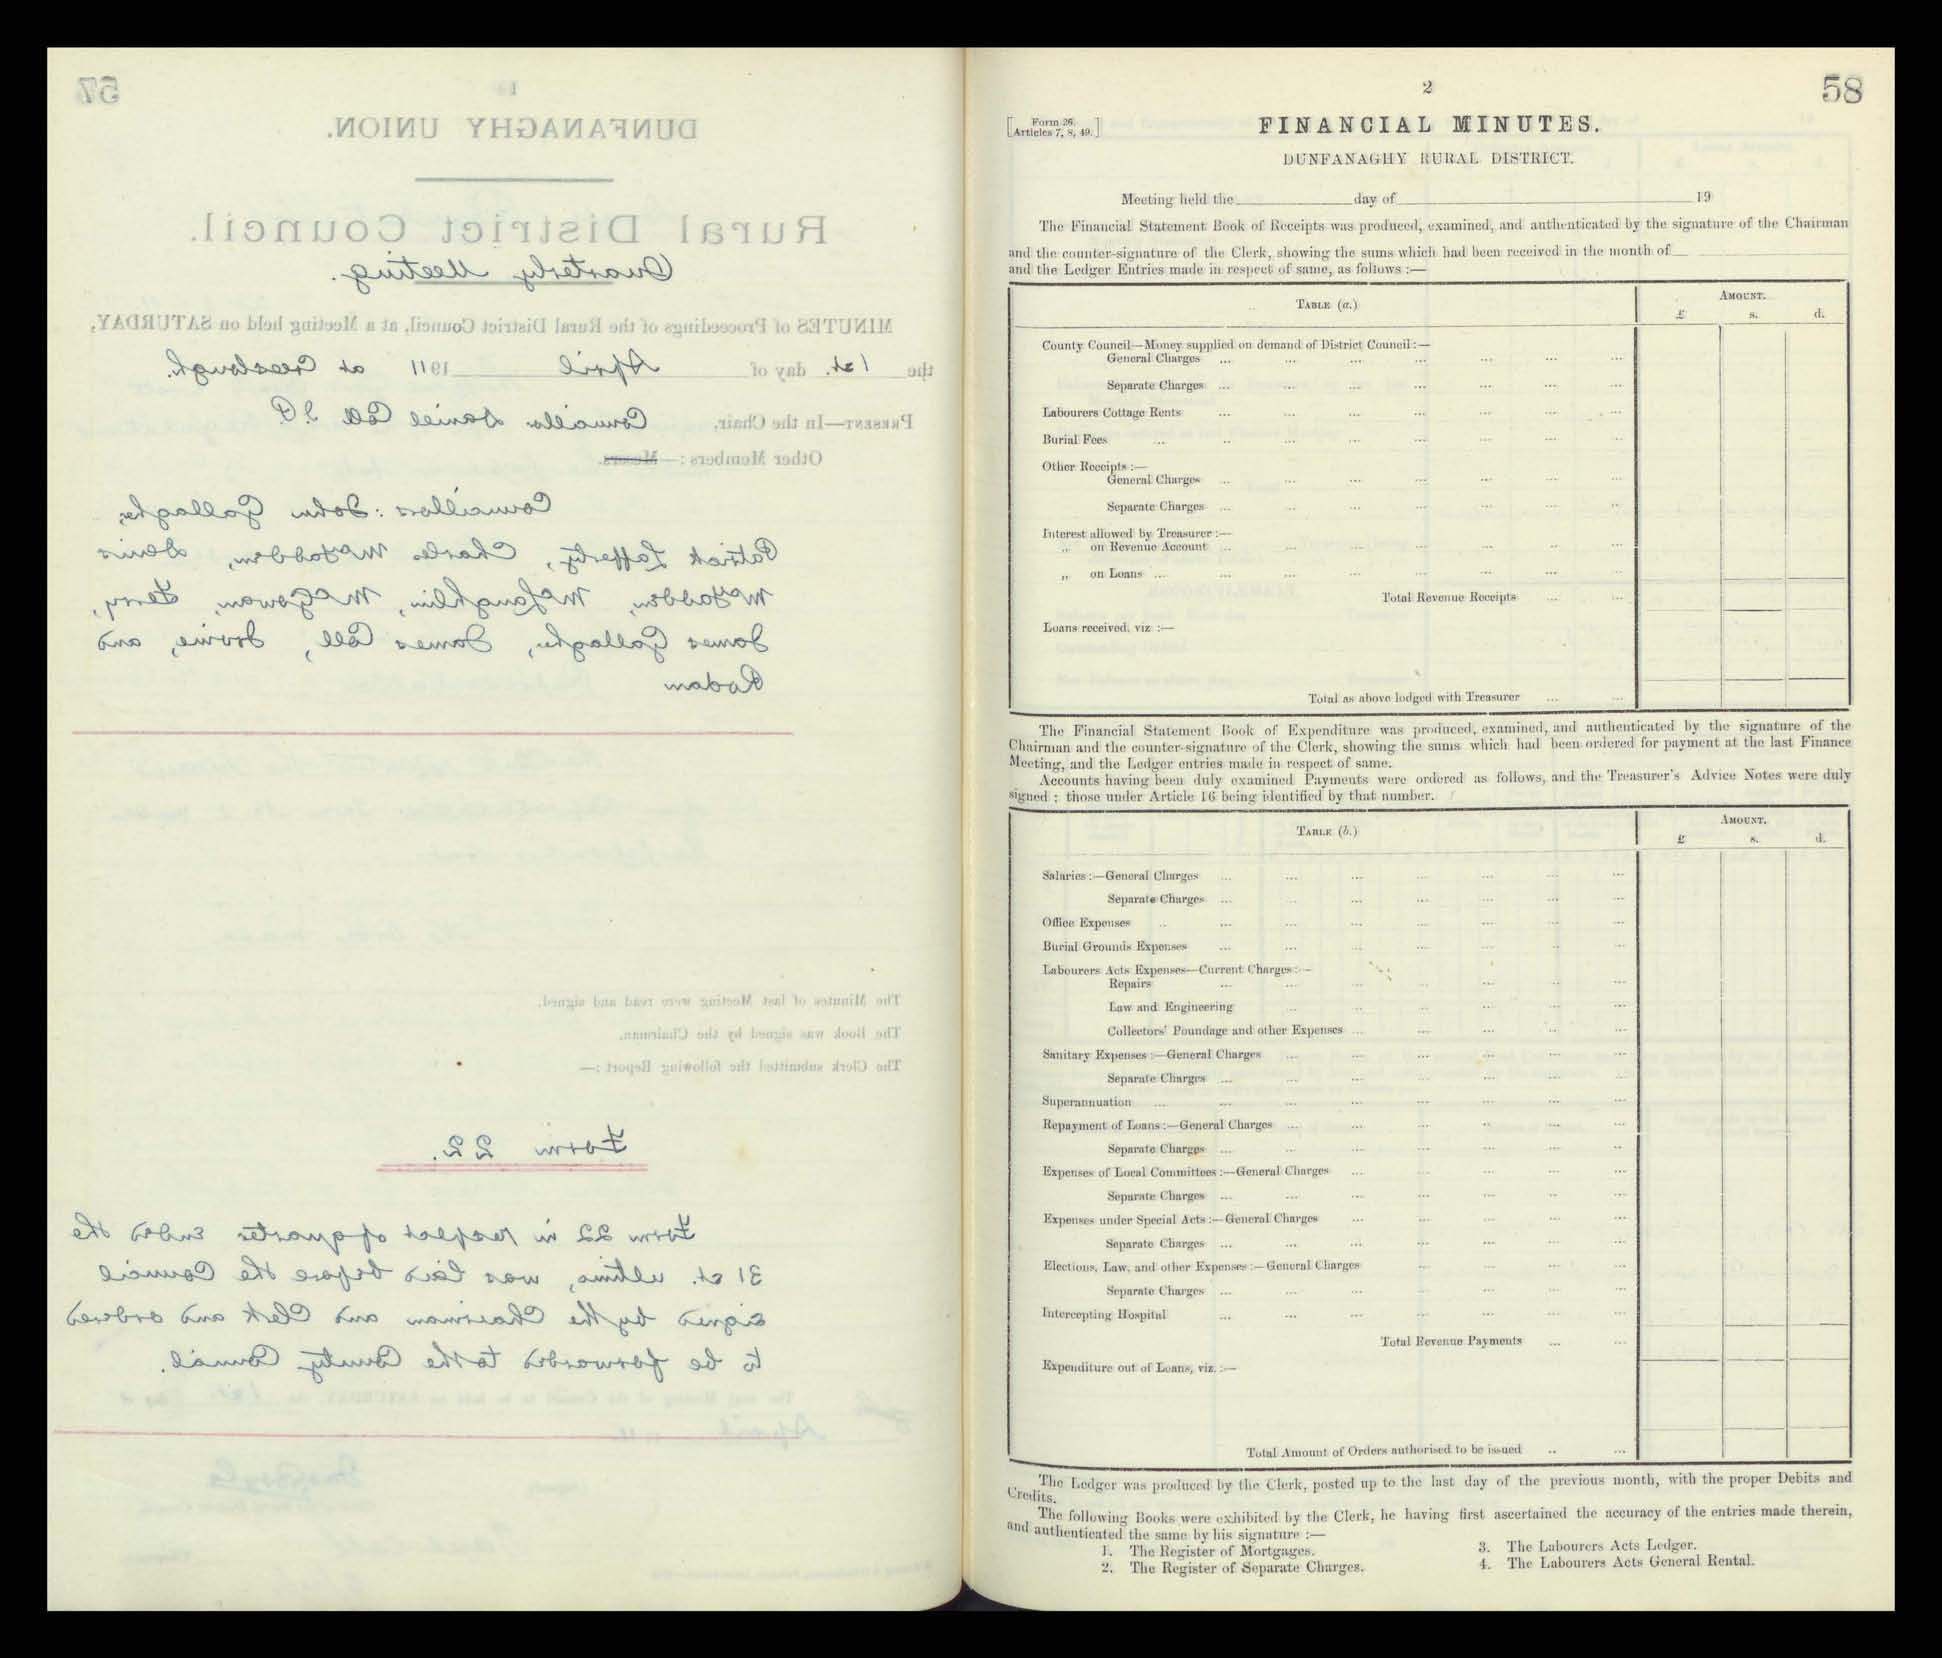 57
1
DUNFANAGHY UNION.
Rural District Council.
Quarterly Meeting.
MINUTES of Proceedings of the Rural District Council, at a Meeting held on SATURDAY,
the 1st. day of April 1911 at Creeslough.
PRESENT—In the Chair, Councillor Daniel Coll J.P.
Other Members:—Messrs.
Councillors: John Gallagher,
Patrick Lafferty, Charles McFadden, Denis
McFadden, McLaughlin, McGowan, Ferry,
James Gallagher, James Coll, Irvine, and
Rodan
The Minutes of last Meeting were read and signed.
The Book was signed by the Chairman.
The Clerk submitted the following Report:—
Form 22.
Form 22 in respect of quarter ended the
31st. ultimo, was laid before the Council
signed by the Chairman and Clerk and ordered
to be forwarded to the County Council.
2
58
[Form 26. Articles 7, 8, 49.]
FINANCIAL MINUTES.
DUNFANAGHY RURAL DISTRICT.
Meeting held the day of 19
The Financial Statement Book of Receipts was produced, examined, and authenticated by the signature of the Chairman
and the counter-signature of the Clerk, showing the sums which had been received in the month of
and the Ledger Entries made in respect of same, as follows :—
TABLE (a.) AMOUNT.
£ s. d.
County Council—Money supplied on demand of District Council :—
General Charges ... ... ... ... ... ... ...
Separate Charges ... ... ... ... ... ... ...
Labourers Cottage Rents ... ... ... ... ... ... ...
Burial Fees ... ... ... ... ... ... ... ...
Other Receipts :—
General Charges ... ... ... ... ... ... ...
Separate Charges ... ... ... ... ... ... ...
Interest allowed by Treasurer :—
„ on Revenue Account ... ... ... ... ... ... ...
„ on Loans ... ... ... ... ... ... ... ...
Total Revenue Receipts ... ...
Loans received, viz :—
Total as above lodged with Treasurer ... ...
The Financial Statement Book of Expenditure was produced, examined, and authenticated by the signature of the
Chairman and the counter-signature of the Clerk, showing the sums which had been ordered for payment at the last Finance
Meeting, and the Ledger entries made in respect of same.
Accounts having been duly examined Payments were ordered as follows, and the Treasurer's Advice Notes were duly
signed ; those under Article 16 being identified by that number.
TABLE (b.) AMOUNT.
£ s. d.
Salaries :—General Charges ... ... ... ... ... ... ...
Separate Charges ... ... ... ... ... ... ...
Office Expenses ... ... ... ... ... ... ... ...
Burial Grounds Expenses ... ... ... ... ... ... ...
Labourers Acts Expenses—Current Charges :—
Repairs ... ... ... ... ... ... ...
Law and Engineering ... ... ... ... ... ...
Collectors' Poundage and other Expenses ... ... ... ... ...
Sanitary Expenses :—General Charges ... ... ... ... ... ...
Separate Charges ... ... ... ... ... ... ...
Superannuation ... ... ... ... ... ... ... ...
Repayment of Loans :—General Charges ... ... ... ... ... ...
Separate Charges ... ... ... ... ... ... ...
Expenses of Local Committees :—General Charges ... ... ... ... ...
Separate Charges ... ... ... ... ... ... ...
Expenses under Special Acts :—General Charges ... ... ... ... ...
Separate Charges ... ... ... ... ... ... ...
Elections, Law, and other Expenses :—General Charges ... ... ... ...
Separate Charges ... ... ... ... ... ... ...
Intercepting Hospital ... ... ... ... ... ... ...
Total Revenue Payments ... ...
Expenditure out of Loans, viz. :—
Total Amount of Orders authorised to be issued ... ...
The Ledger was produced by the Clerk, posted up to the last day of the previous month, with the proper Debits and
Credits.
The following Books were exhibited by the Clerk, he having first ascertained the accuracy of the entries made therein,
and authenticated the same by his signature :—
1. The Register of Mortgages.
2. The Register of Separate Charges.
3. The Labourers Acts Ledger.
4. The Labourers Acts General Rental.